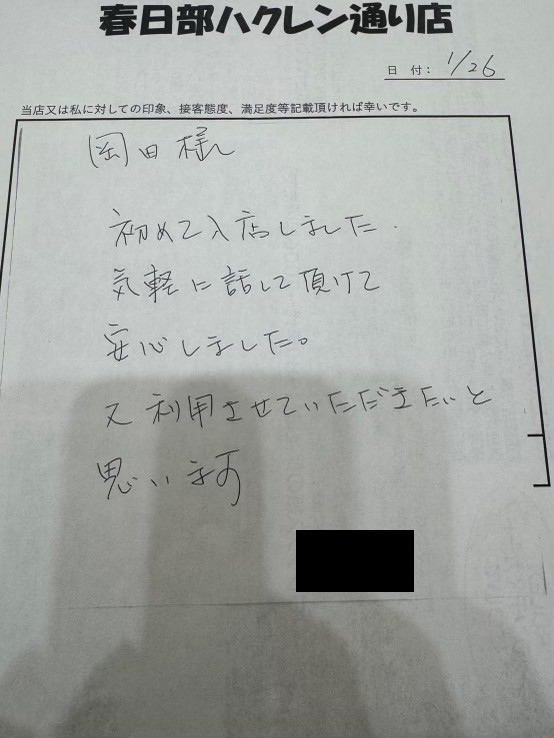 春日部ハクレン通り店
日 付： 1/26
当店又は私に対しての印象、接客態度、満足度等記載頂ければ幸いです。
岡田様
初めて入店しました.
気軽に話して頂けて
安心しました。
又利用させていただきたいと
思います